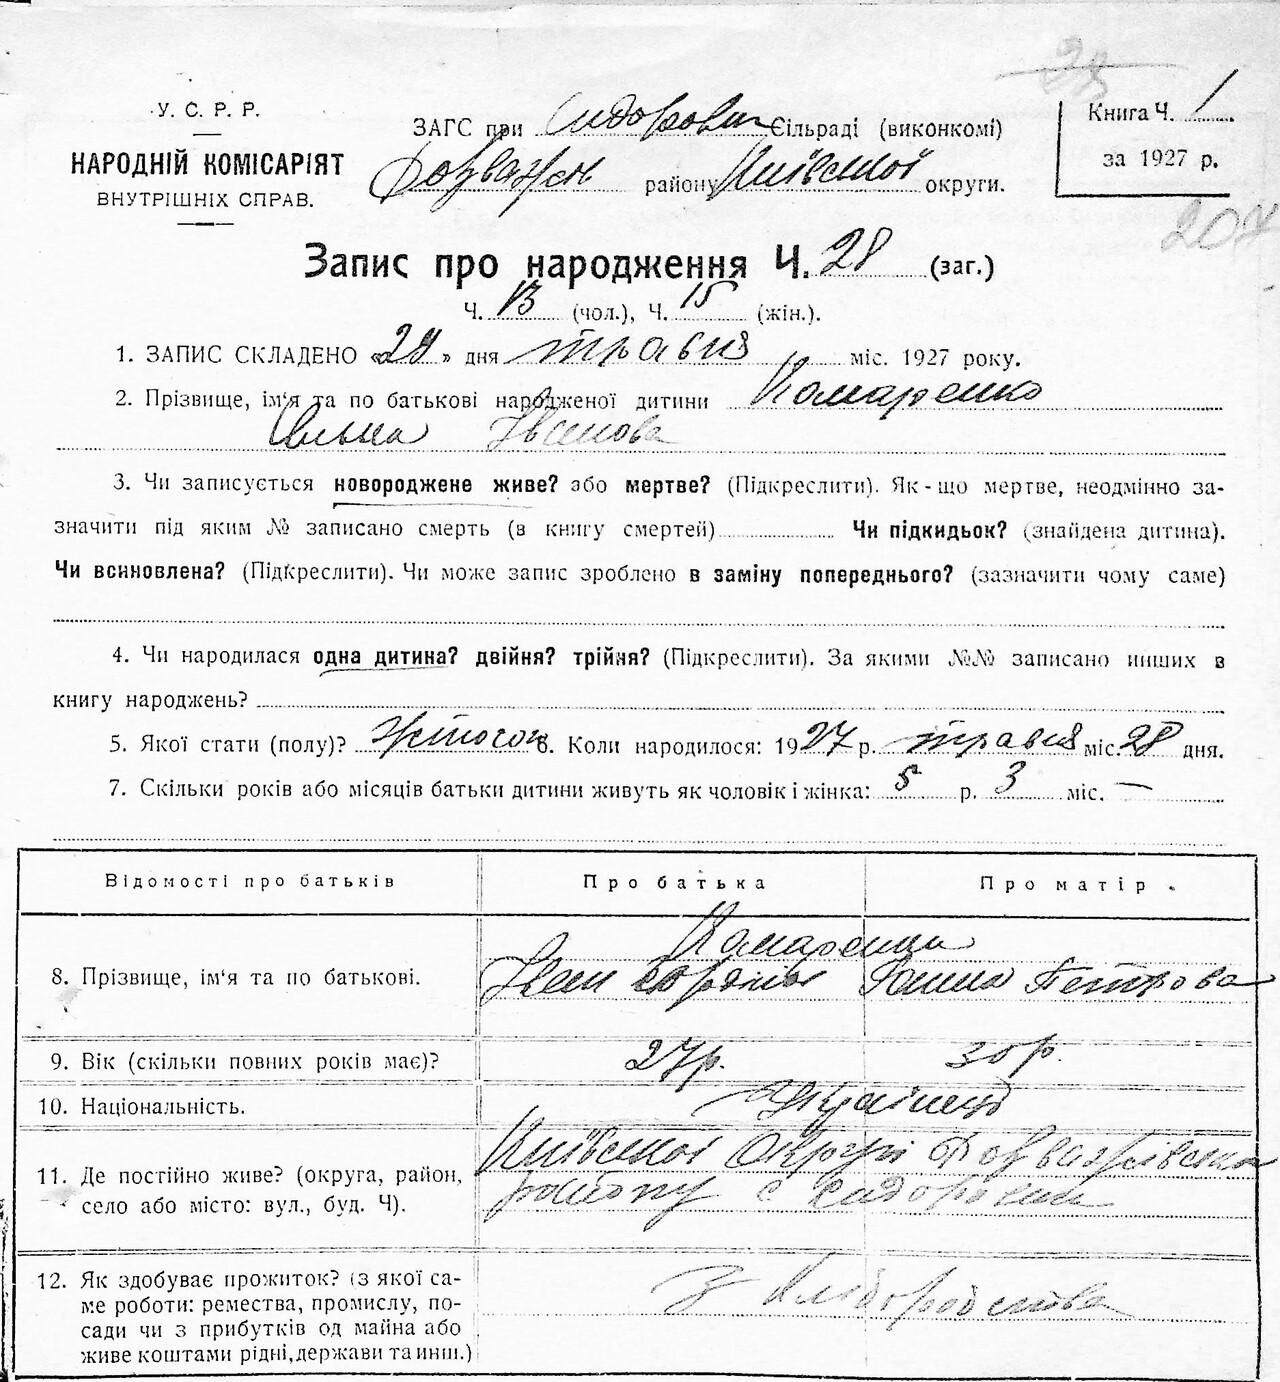 У. С. Р. Р.
НАРОДНІЙ КОМІСАРІЯТ
ВНУТРІШНІХ СПРАВ.
ЗАГС при Сидорович Сільраді (виконкомі)
Розважев району Київської округи.
Книга Ч. 1
за 1927 р.
207
Запис про народження Ч. 28 (заг.)
Ч. 13 (чол.), Ч. 15 (жін.).
1. ЗАПИС СКЛАДЕНО «29» дня травня міс. 1927 року.
2. Прізвище, ім'я та по батькові народженої дитини Комаренко
Іванова
3. Чи записується новороджене живе? або мертве? (Підкреслити). Як-що мертве, неодмінно за-
значити під яким № записано смерть (в книгу смертей) Чи підкидьок? (знайдена дитина).
Чи всиновлена? (Підкреслити). Чи може запис зроблено в заміну попереднього? (зазначити чому саме)
4. Чи народилася одна дитина? двійня? трійня? (Підкреслити). За якими №№ записано инших в
книгу народжень?
5. Якої стати (полу)? Жіночої 6. Коли народилося: 1927 р. травня міс. 28 дня.
7. Скільки років або місяців батьки дитини живуть як чоловік і жінка: 5 р. 3 міс. —
Відомості про батьків Про батька Про матір.
8. Прізвище, ім'я та по батькові.
Комаренки
Іван Ганна Петрова
9. Вік (скільки повних років має)? 27р. 30р.
10. Національність. Українці
11. Де постійно живе? (округа, район,
село або місто: вул., буд. Ч).
Київської Округи Розважівська
району с Сидоровичі
12. Як здобуває прожиток? (з якої са-
ме роботи: ремества, промислу, по-
сади чи з прибутків од майна або
живе коштами рідні, держави та инш.)
З хлібородства